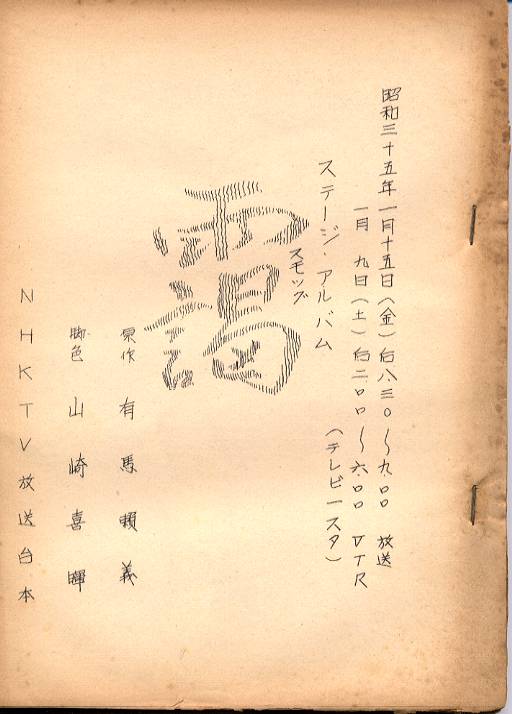 昭和三十五年一月十五日(金)后八.三〇〜九.〇〇 放送
一月 九日(土)后二.〇〇〜六.〇〇 VTR
ステージ・アルバム (テレビースタ)
スモッグ
靄
原作 有馬頼義
脚色 山崎喜暉
NHKTV放送台本